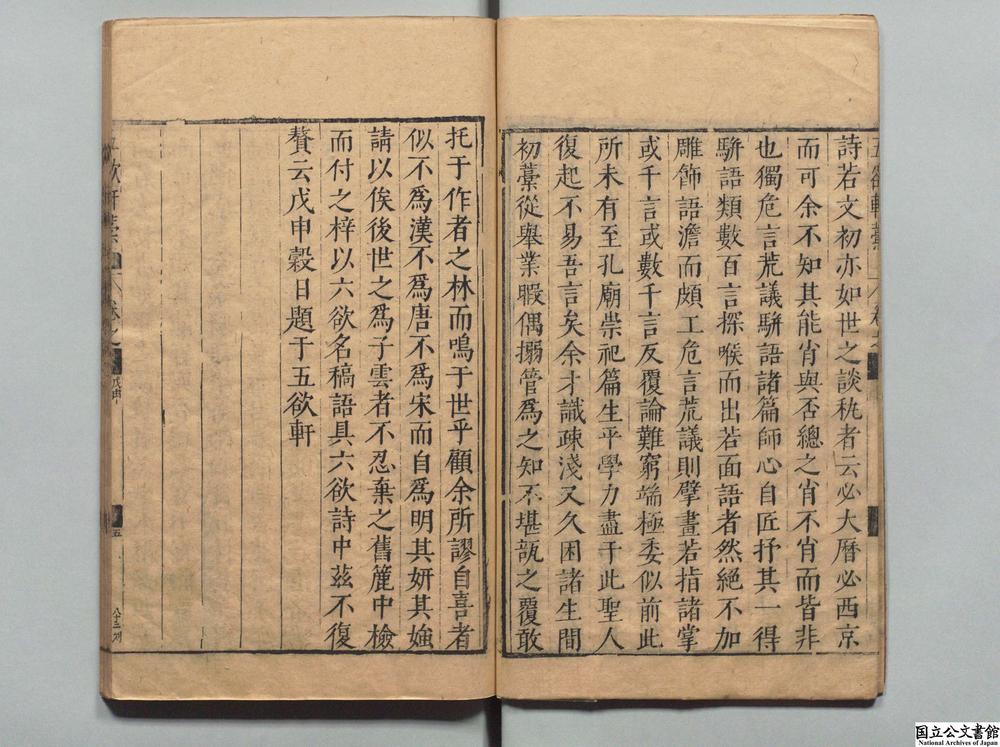 詩若文初亦如世之談秇者云必大曆必西京
而可余不知其能肖與否總之肖不肖而皆非
也獨危言荒議駢語諸篇師心自匠抒其一得
駢語類數百言探喉而出若面語者然絕不加
雕飾語澹而頗工危言荒議則擘畫若指諸掌
或千言或數千言反覆論難窮端極委似前此
所未有至孔廟崇祀篇生平學力盡于此聖人
復起不易吾言矣余才識疎淺又久困諸生間
初藁從舉業暇偶搦管爲之知不堪瓿之覆敢
托于作者之林而鳴于世乎顧余所謬自喜者
似不爲漢不爲唐不爲宋而自爲明其妍其媸
請以俟後世之爲子雲者不忍棄之舊簏中檢
而付之梓以六欲名稿語具六欲詩中茲不復
贅云戊申穀日題于五欲軒
戊申
五
国立公文書館
National Archives of Japan